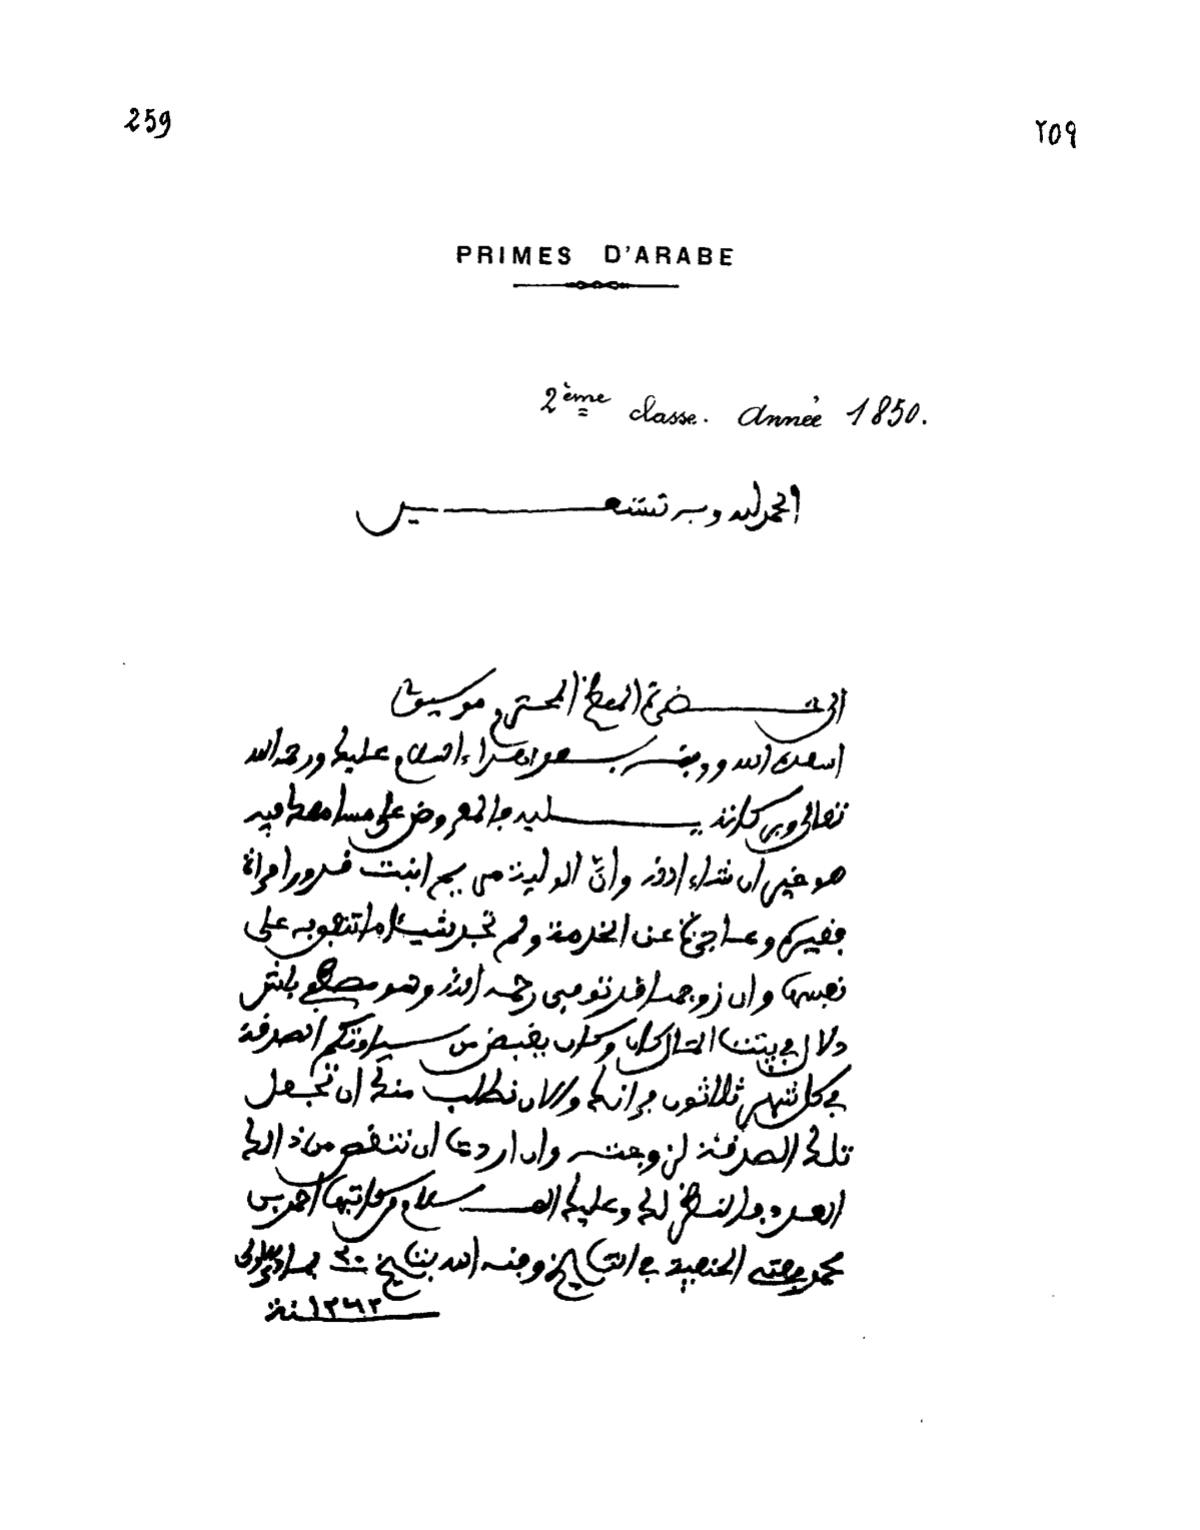 259
٢٥٩
PRIMES D'ARABE
2ème classe. Année 1850.
الحمد لله وبه نستعين
الى حضرة المعظم المحترم موسيو
اسعده الله ووفقه السلام عليك ورحمة الله
تعالى وبركاته يليه فالمعروض على مسامعكم فيه
هو خير ان شاء الله وان الولية بنت قدور امراة
فقيرة وعاجزة عن الخدمة ولم تجد شيئا ما تتقوت به على
نفسها وان زوجها قد توفى رحمه الله وهو مصطفى باش
دلال بيت المال كان وكان يقبض من سيادتكم الصدقة
في كل شهر ثلاثون فرانك والان نطلب منك ان تجعل
تلك الصدقة لزوجته وان اردت ان تنقص من ذالك
العدد فالنظر لك وعليك السلام من كاتبه احمد بن
محمد مفتي الحنفية في التاريخ وفقه الله بتاريخ ٢٠ جمادى الاولى
سنة ١٢٦٢